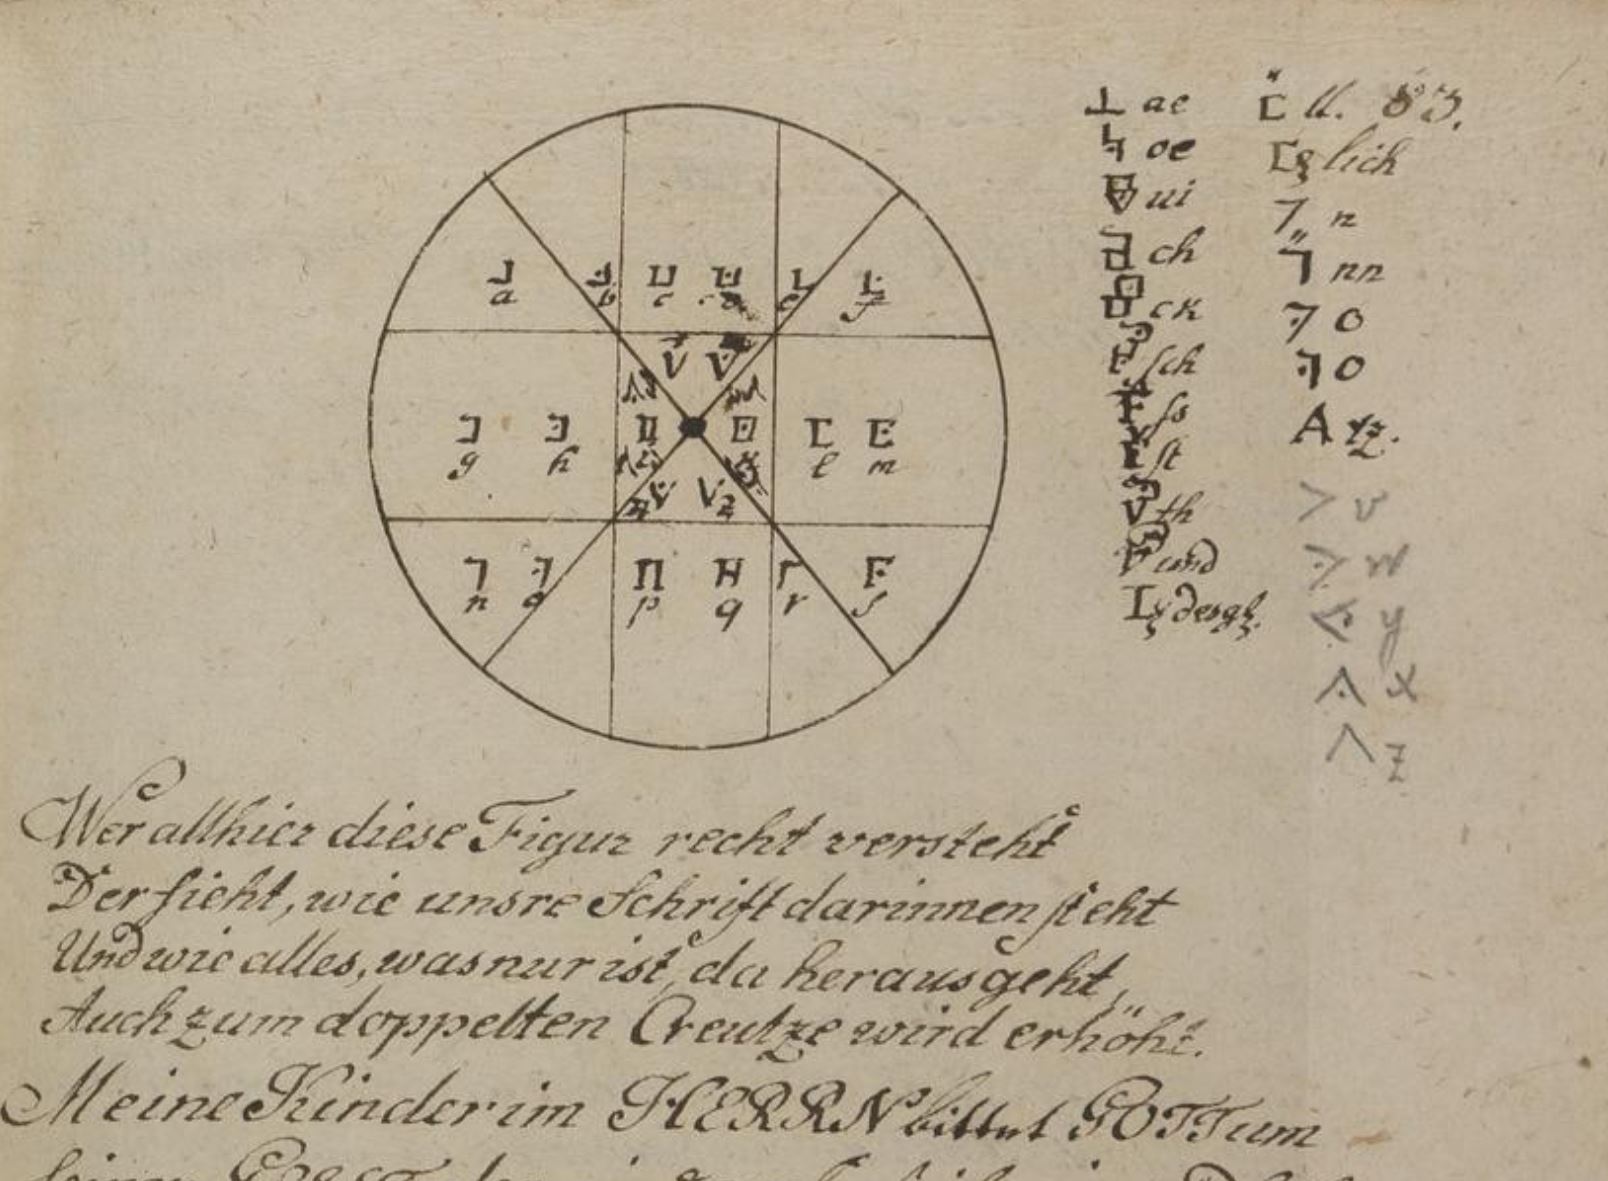 a b c d e f
g h l m
n o p q r s
ae
oe
ui
ch
ck
sch
ss
st
th
und
desgl.
ll. 83.
lich
n
nn
o
o
tz.
v
w
y
x
z
Wer allhier diese Figur recht versteht
Der sieht, wie unsre Schrift darinnen steht
Und wie alles, was nur ist, da heraus geht,
Auch zum doppelten Creutze wird erhöht.
Meine Kinder im HERRN bittet GOTT um